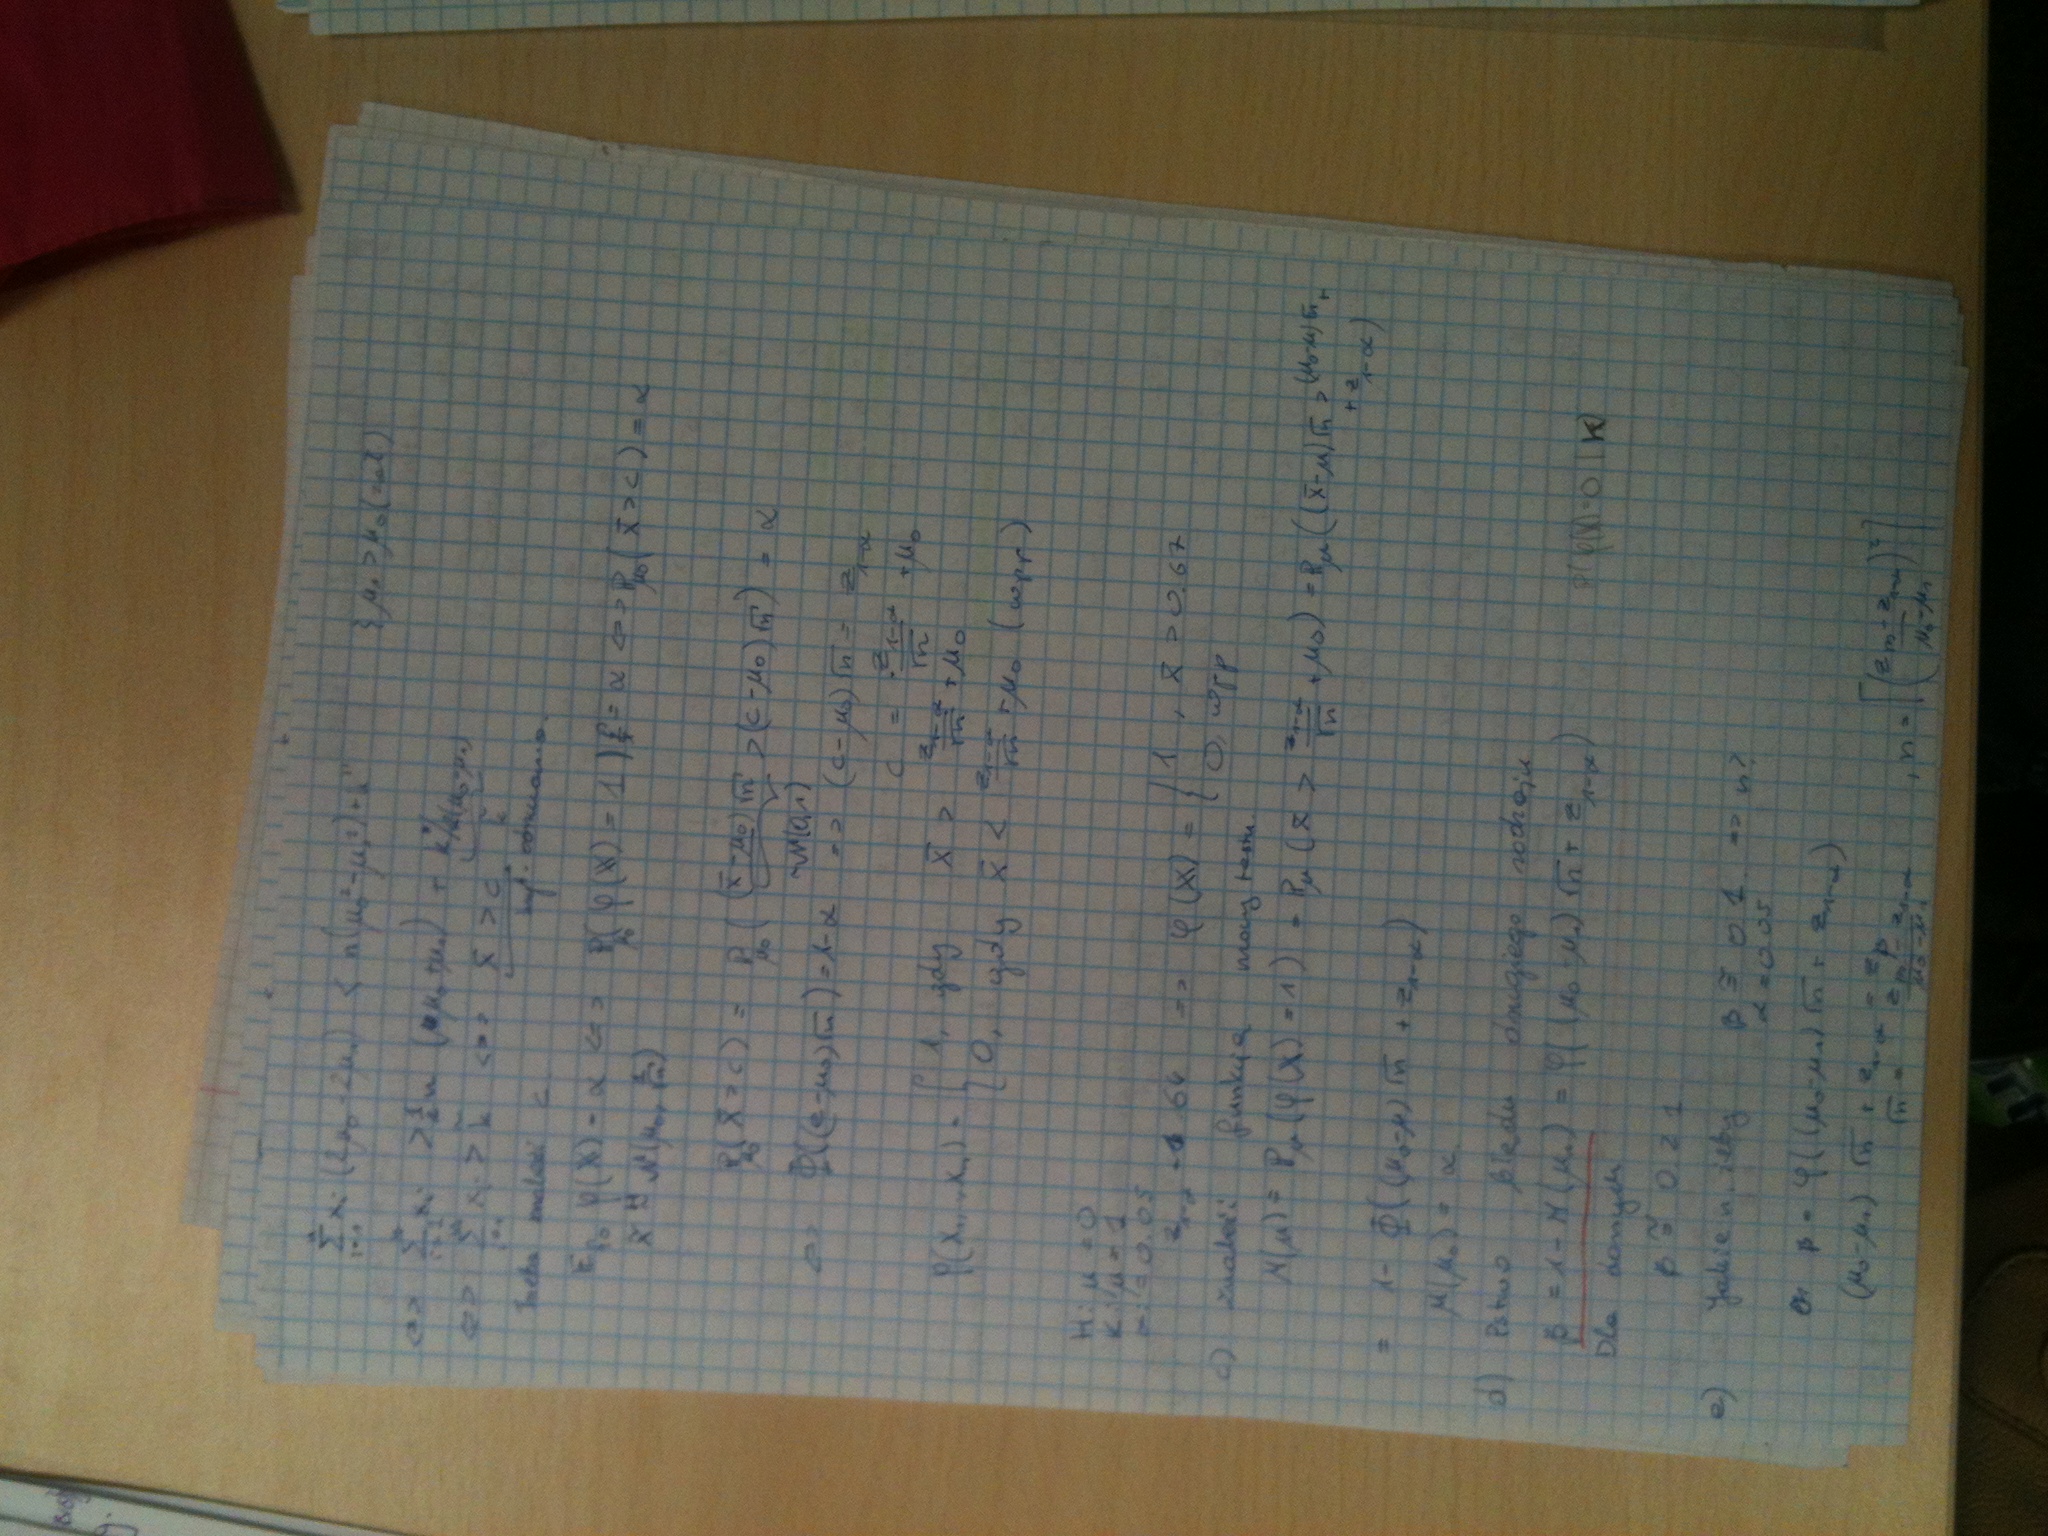 Σ_{i=1}^{n} x_i (2μ₀ - 2μ₁) < n(μ₀² - μ₁²) + k'' { μ₁ > μ₀ (=al)
<=> Σ_{i=1}^{n} x_i > 1/2 n (μ₀ + μ₁) + k''/2(μ₀-μ₁)
<=> Σ_{i=1}^{n} x_i > k̃ <=> x̄ > c k̃
Trzeba znaleźć c.
E_{P₀} φ(X) = α <=> P_{μ₀}(φ(X) = 1) = α <=> P_{μ₀}(x̄ > c) = α
x̄ ~ N(μ₀, 1/√n)
P_{μ₀}(x̄ > c) = P_{μ₀}((x̄ - μ₀)√n > (c - μ₀)√n) = α
~N(0,1)
<=> Φ((c - μ₀)√n) = 1-α => (c - μ₀)√n = z_{1-α}
c = z_{1-α}/√n + μ₀
φ(x₁...x_n) = { 1, gdy x̄ > z_{1-α}/√n + μ₀
0, gdy x̄ < z_{1-α}/√n + μ₀ (wpp)
H: μ = 0
K: μ = 1
α: = 0.05
z_{1-α} = 1.64 => φ(X) = { 1, x̄ > 0.67
0, wpp
c) znaleźć funkcję mocy testu.
M(μ) = P_μ(φ(X) = 1) = P_μ(x̄ > z_{1-α}/√n + μ₀) = P_μ((x̄ - μ)√n > (μ₀ - μ)√n +
+ z_{1-α})
= 1 - Φ((μ₀ - μ)√n + z_{1-α})
M(μ₀) = α
d) Pstwo błędu drugiego rodzaju
β = 1 - M(μ₁) = φ((μ₀ - μ₁)√n + z_{1-α}) P(φ(X)=0 | K)
Dla danych
β ≅ 0.21
e) Jakie n, żeby β ≅ 0.1 => n?
α = 0.05
β = φ((μ₀ - μ₁)√n + z_{1-α})
(μ₀ - μ₁)√n + z_{1-α} = z_β
√n = (z_β - z_{1-α})/(μ₀ - μ₁) , n = ⌈((z_β - z_{1-α})/(μ₀ - μ₁))²⌉